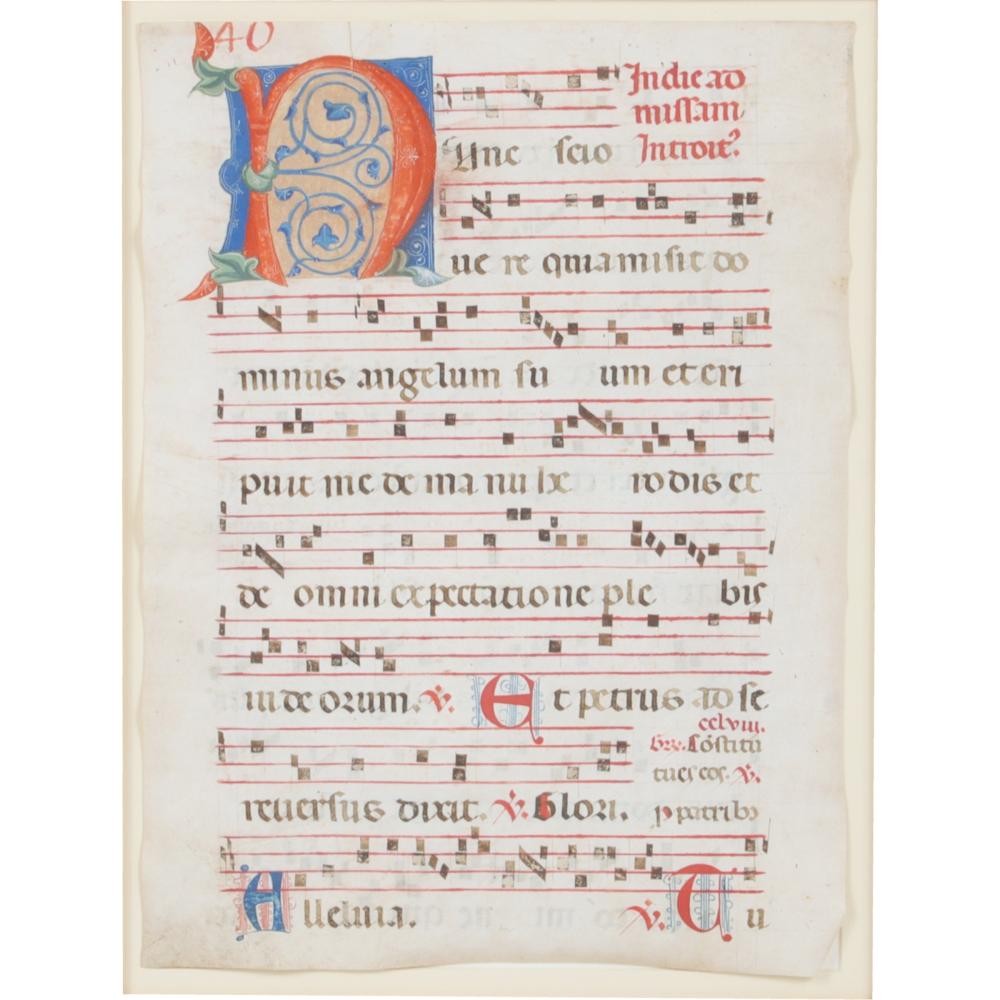 40
In die ad
missam
Nunc scio Introit.
ue re quia misit do
minus angelum su um et eri
puit me de ma nu he ro dis et
de omni expectatione ple bis
iudeorum. V. Et petrus ad se
cclviii.
Gr. Cōstitu
tues eos. V.
reuersus dixit. V. Glori. p patribȝ
Alleluia. V. Tu